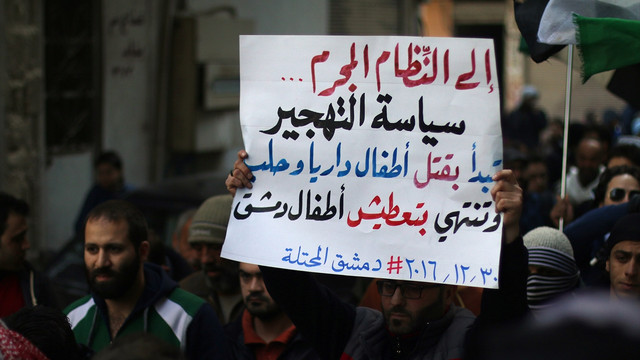 إلى النِّظام المجرم ...
سياسة التهجير
تبدأ بقتل أطفال داريا وحلب
وتنتهي بتعطيش أطفال دمشق
٣٠.١٢.٢٠١٦ #دمشق المحتلة